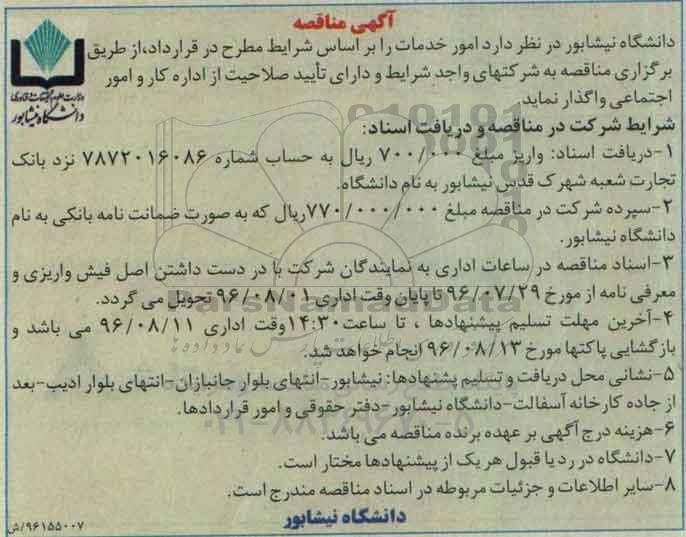 آگهی مناقصه
وزارت علوم، تحقیقات و فناوری
دانشگاه نیشابور
دانشگاه نیشابور در نظر دارد امور خدمات را بر اساس شرایط مطرح در قرارداد،از طریق
برگزاری مناقصه به شرکتهای واجد شرایط و دارای تأیید صلاحیت از اداره کار و امور
اجتماعی واگذار نماید.
شرایط شرکت در مناقصه و دریافت اسناد:
۱-دریافت اسناد: واریز مبلغ ۷۰۰/۰۰۰ ریال به حساب شماره ۷۸۷۲۰۱۶۰۸۶ نزد بانک
تجارت شعبه شهرک قدس نیشابور به نام دانشگاه.
۲-سپرده شرکت در مناقصه مبلغ ۷۷۰/۰۰۰/۰۰۰ریال که به صورت ضمانت نامه بانکی به نام
دانشگاه نیشابور.
۳-اسناد مناقصه در ساعات اداری به نمایندگان شرکت با در دست داشتن اصل فیش واریزی و
معرفی نامه از مورخ ۹۶/۰۷/۲۹ تا پایان وقت اداری ۹۶/۰۸/۰۱ تحویل می گردد.
۴-آخرین مهلت تسلیم پیشنهادها ، تا ساعت۱۴:۳۰وقت اداری ۹۶/۰۸/۱۱ می باشد و
بازگشایی پاکتها مورخ ۹۶/۰۸/۱۳ انجام خواهد شد.
۵-نشانی محل دریافت و تسلیم پشنهادها: نیشابور-انتهای بلوار جانبازان-انتهای بلوار ادیب-بعد
از جاده کارخانه آسفالت-دانشگاه نیشابور-دفتر حقوقی و امور قراردادها.
۶-هزینه درج آگهی بر عهده برنده مناقصه می باشد.
۷-دانشگاه در رد یا قبول هر یک از پیشنهادها مختار است.
۸-سایر اطلاعات و جزئیات مربوطه در اسناد مناقصه مندرج است.
دانشگاه نیشابور
۹۶۱۵۵۰۰۷/ش
ParsNamadData